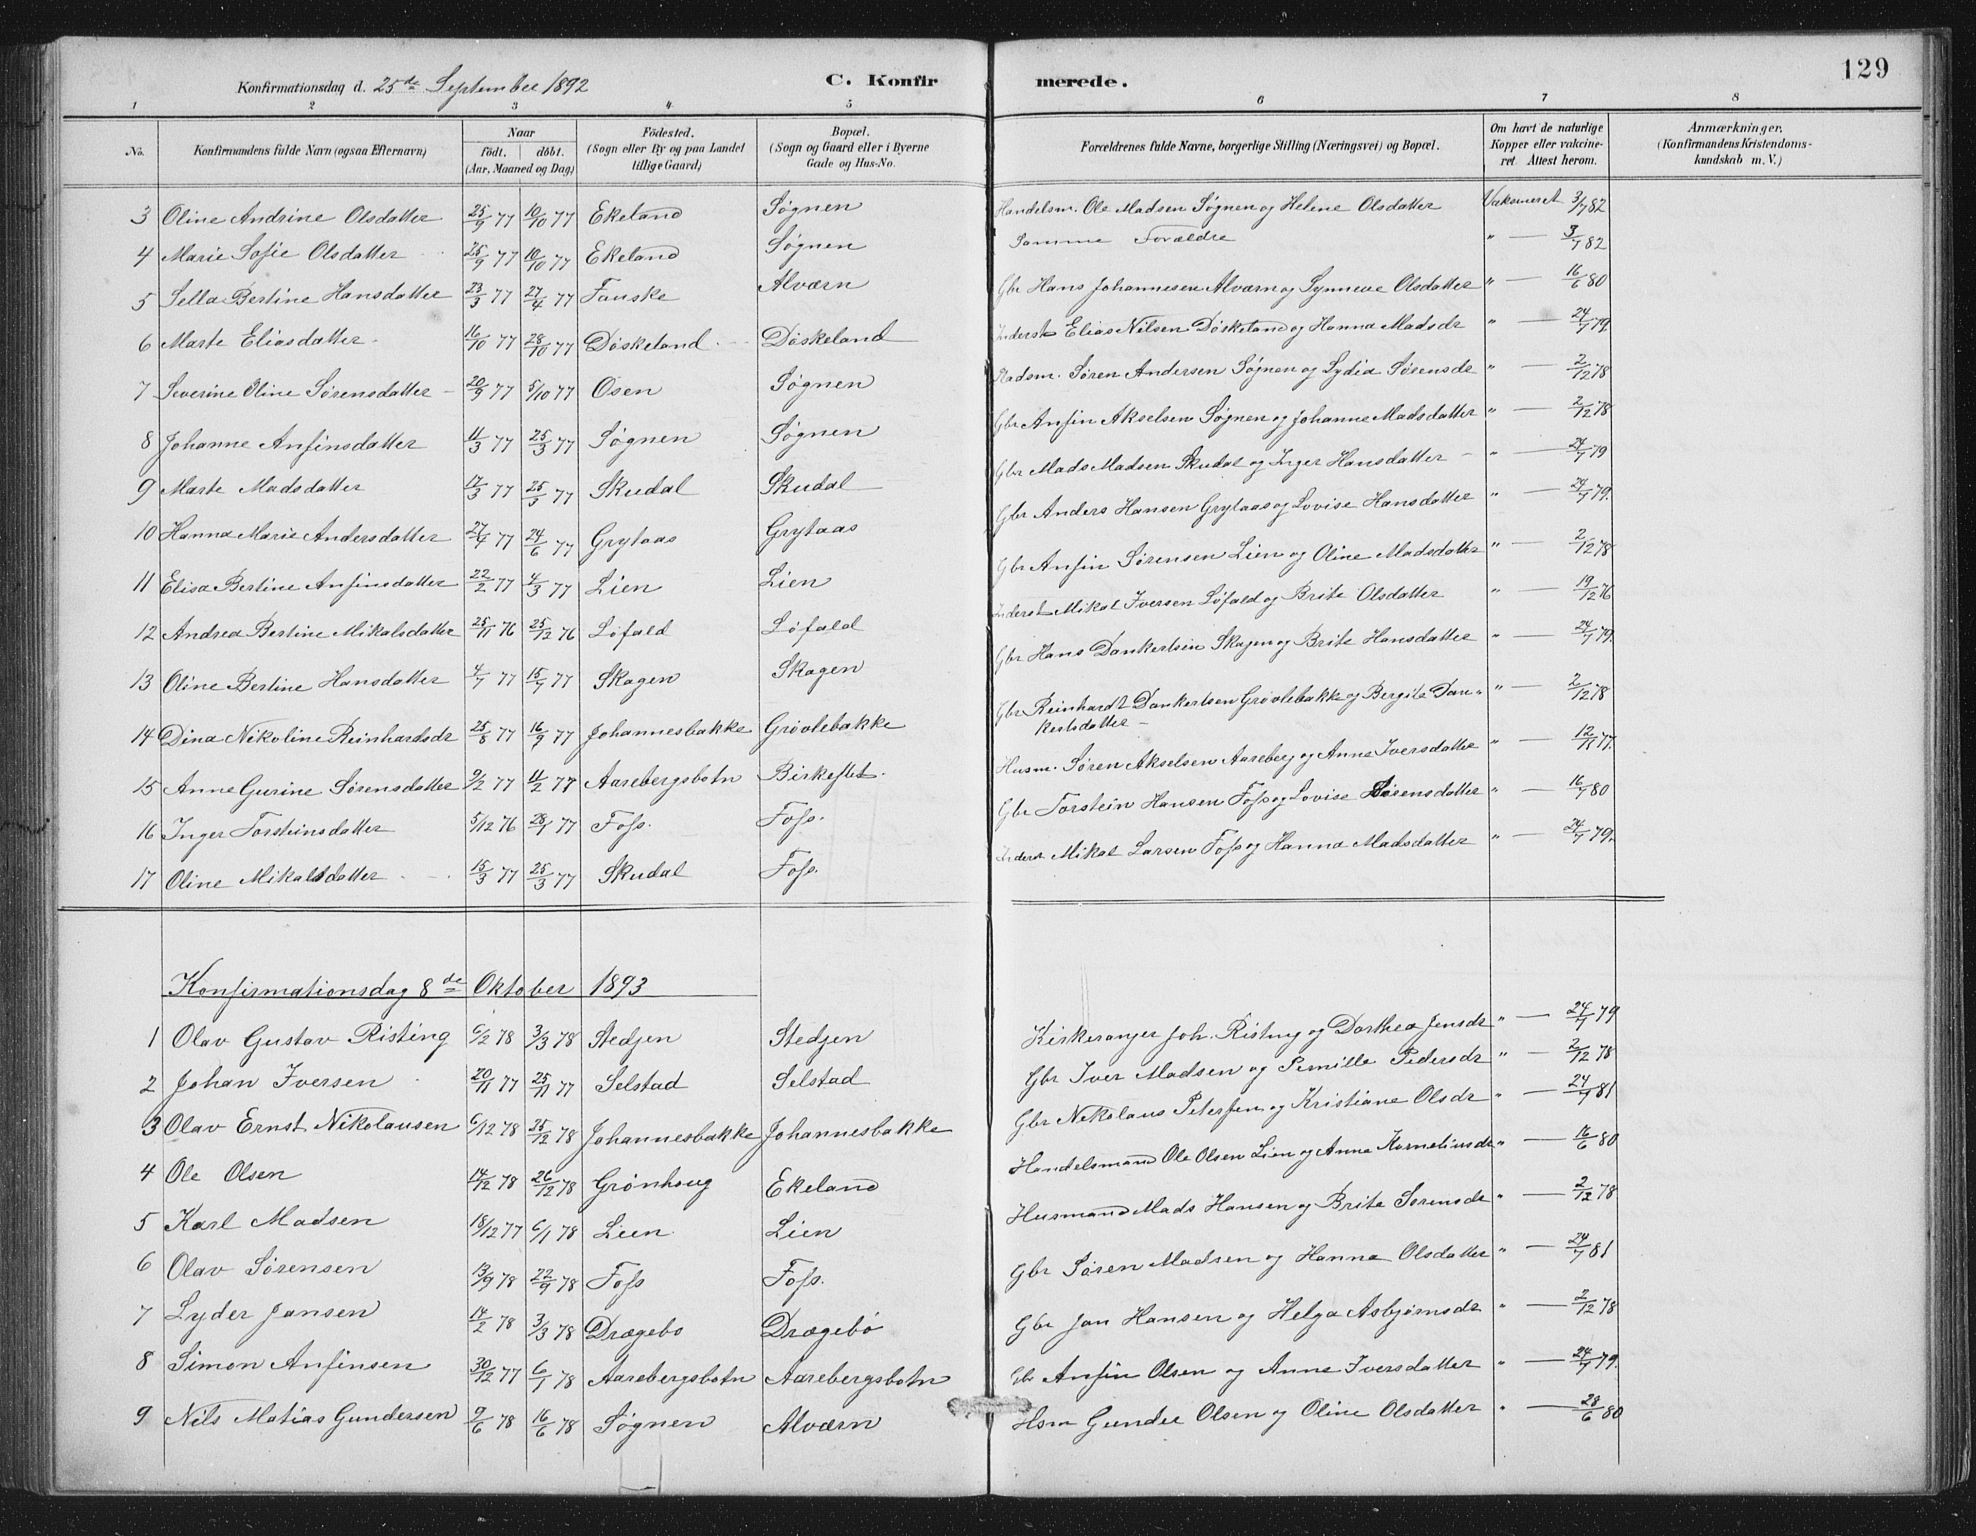 129
Konfirmationsdag d. 25de September 1892 C. Konfir merede.
1 2 3 4 5 6 7 8
No. Konfirmandens fulde Navn (ogsaa Efternavn) Naar födt. döbt. (Aar, Maaned og Dag) Födested. (Sogn eller By og paa Landet tillige Gaard) Bopæl. (Sogn og Gaard eller i Byerne Gade og Hus-No. Forældrenes fulde Navne, borgerlige Stilling (Næringsvei) og Bopæl. Om havt de naturlige Kopper eller vakcineret. Attest herom. Anmærkninger. (Konfirmandens Kristendomskundskab m. V.)
3 Oline Andrine Olsdatter 25/9 77 10/10 77 Ekeland Søgnen Handelsm. Ole Madsen Søgnen og Helene Olsdatter Vaksineret 3/7 82
4 Marie Sofie Olsdatter 25/9 77 10/10 77 Ekeland Søgnen Samme Forældre " — 3/7 82
5 Sella Bertine Hansdatter 23/3 77 27/4 77 Fauske Alværn Gbr Hans Johannesen Alværn og Synneve Olsdatter " — 16/6 80
6 Marte Eliasdatter 16/10 77 28/10 77 Døskeland Døskeland Inderst Elias Nilsen Døskeland og Hanna Madsdr " — 24/7 79.
7 Severine Oline Sørensdatter 20/9 77 5/10 77 Osen Søgnen Søren Andersen Søgnen og Lydia Sørensdr " — 2/12 78
8 Johanne Anfinsdatter 11/3 77 25/3 77 Søgnen Søgnen Gbr Anfin Akselsen Søgnen og Johanne Madsdatter " — 2/12 78
9 Marte Madsdatter 17/3 77 25/3 77 Skudal Skudal Gbr Mads Madsen Skudal og Inger Hansdatter " — 24/7 79
10 Hanna Marie Andersdatter 27/4 77 24/6 77 Grytaas Grytaas Gbr Anders Hansen Grytaas og Lovise Hansdatter " — 24/7 79.
11 Elisa Bertine Anfinsdatter 22/2 77 4/3 77 Lien Lien Gbr Anfin Sørensen Lien og Oline Madsdatter " — 2/12 78
12 Andrea Bertine Mikalsdatter 25/11 76 25/12 76 Løfald Løfald Inderst Mikal Iversen Løfald og Brite Olsdatter " — 19/12 76
13 Oline Bertine Hansdatter 4/7 77 15/7 77 Skagen Skagen Gbr Hans Dankertsen Skagen og Brite Hansdatter " — 24/7 79.
14 Dina Nikoline Reinhardsdr 25/8 77 16/9 77 Johannesbakke Grøvlebakke Gbr Reinhardt Dankertsen Grøvlebakke og Bergite Dan-
kertsdatter " — 2/12 78
15 Anne Gurine Sørensdatter 9/2 77 11/2 77 Aarebergsbotn Birkeflet. Husm. Søren Akselsen Aareberg og Anne Iversdatter " — 12/11 77.
16 Inger Torsteinsdatter 5/12 76 28/1 77 Foss. Foss. Gbr Torstein Hansen Foss og Lovise Sørensdatter " — 16/7 80
17 Oline Mikalsdatter 15/3 77 25/3 77 Skudal Foss. Inderst Mikal Larsen Foss og Hanna Madsdatter " — 24/7 79.
Konfirmationsdag 8de Oktober 1893
1 Olav Gustav Risting 6/2 78 3/3 78 Stedjen Stedjen Kirkesanger Joh. Risting og Dorthea Jensdr " — 24/7 79
2 Johan Iversen 20/11 77 25/11 77 Selstad Selstad Gbr Iver Madsen og Pernille Pedersdr " — 2/12 78
3 Olav Ernst Nikolausen 6/12 78 25/12 78 Johannesbakke Johannesbakke Gbr Nikolaus Petersen og Kristiane Olsdr " — 24/7 81
4 Ole Olsen 14/12 78 26/12 78 Grønhoug Ekeland Handelsmand Ole Olsen Lien og Anna Korneliusdr " — 16/6 80
5 Karl Madsen 18/12 77 6/1 78 Lien Lien Husmand Mads Hansen og Brite Sørensdr " — 2/12 78
6 Olav Sørensen 13/9 78 22/9 78 Foss Foss. Gbr Søren Madsen og Hanna Olsdatter " — 24/7 81
7 Lyder Jansen 14/2 78 3/3 78 Drægebø Drægebø Gbr Jan Hansen og Helga Asbjørnsdr " — 2/12 78
8 Simon Anfinsen 30/12 77 6/1 78 Aarebergsbotn Aarebergsbotn Gbr Anfin Olsen og Anne Iversdatter " — 24/7 79.
9 Nils Matias Gundersen 9/6 78 16/6 78 Søgnen Alværn Hsm Gunder Olsen og Oline Olsdatter " — 28/6 80